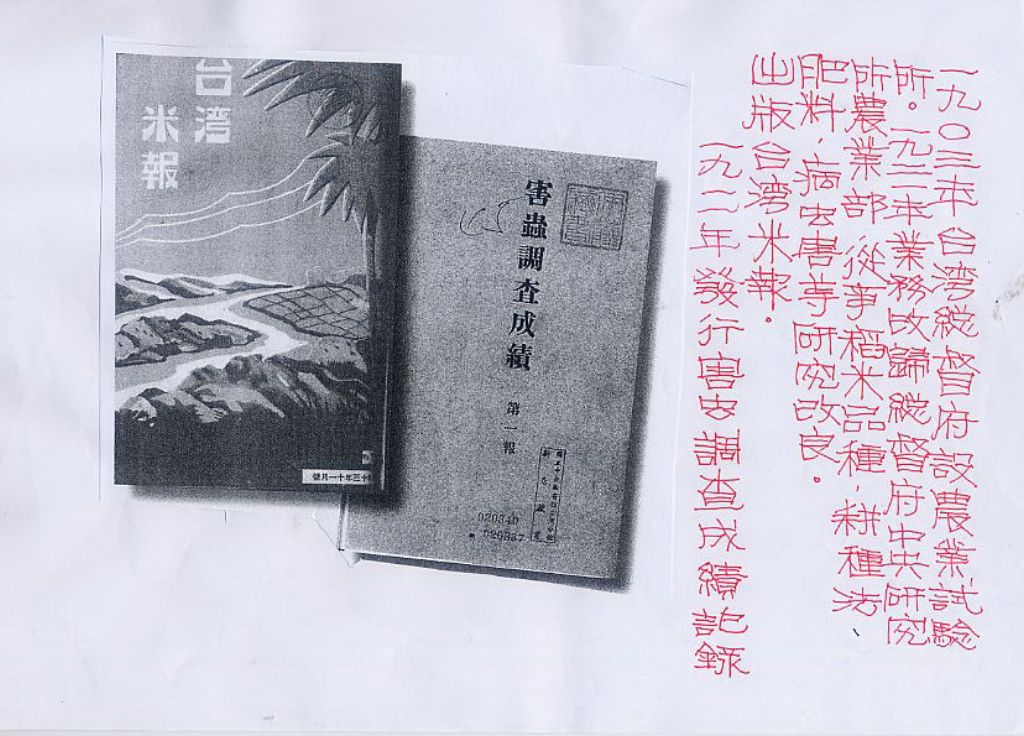 一九〇三年台湾総督府設農業試驗
所。一九二一年業務改歸総督府中央研究
所農業部,從事稻米品種,耕種法
肥料,病虫害等研究改良。
出版台湾米報。
一九二二年發行害虫調查成績記錄
台湾
米報
十三年十一月號
害蟲調查成績 第一報
020340
020387